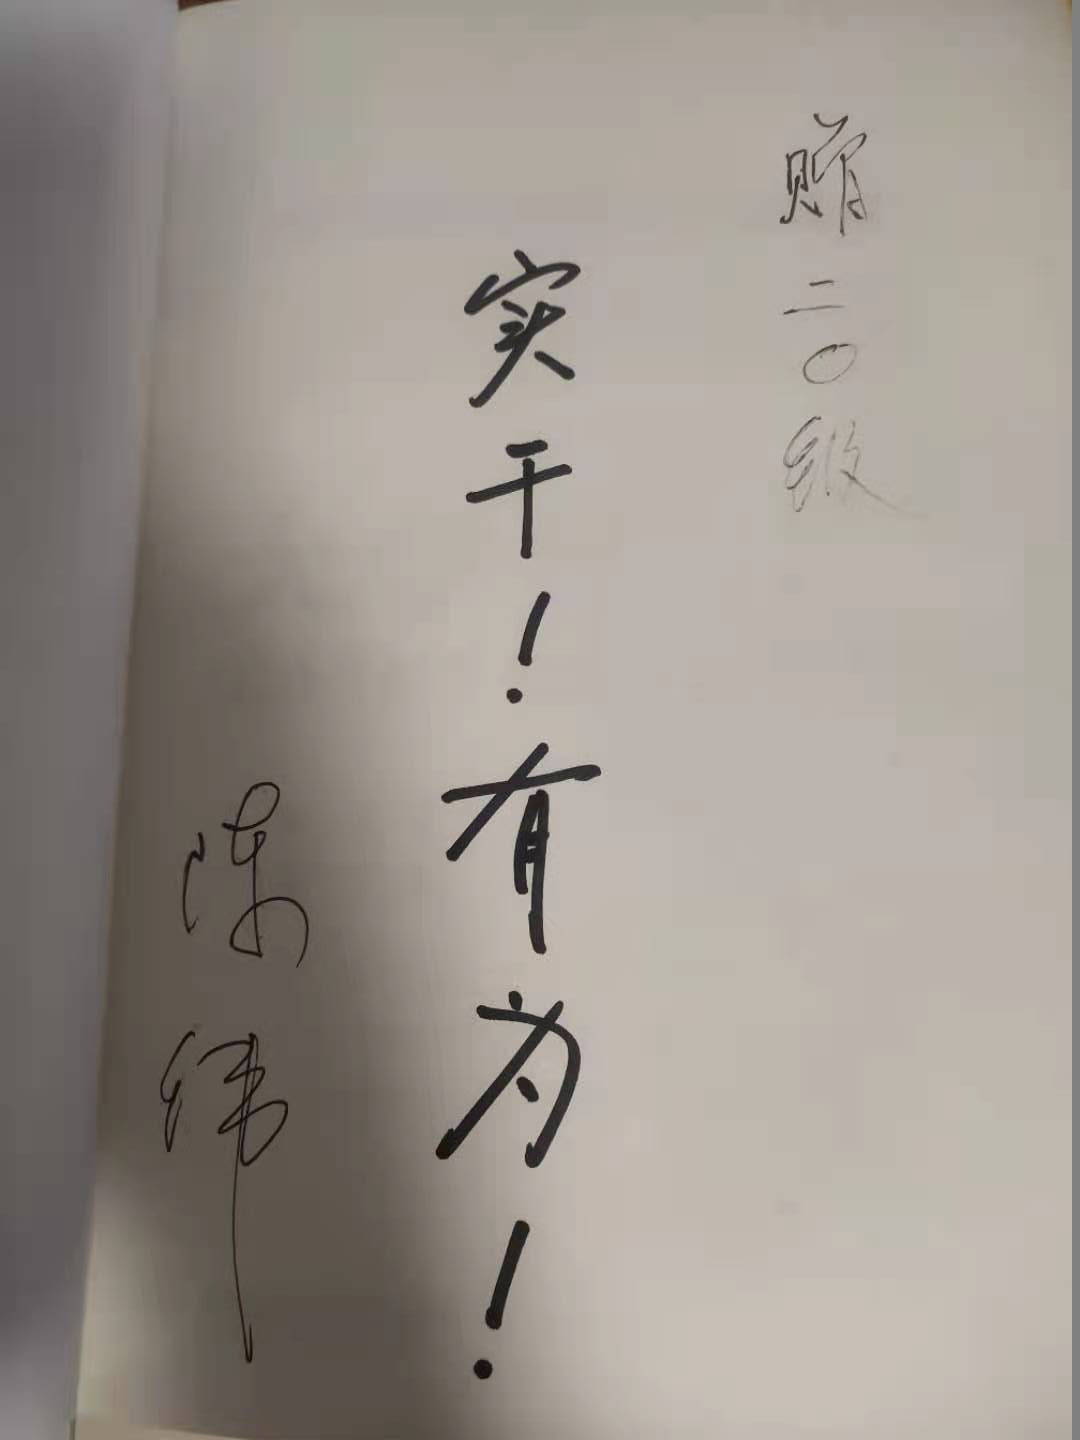 赠二〇级
实干！有为！
陈纬